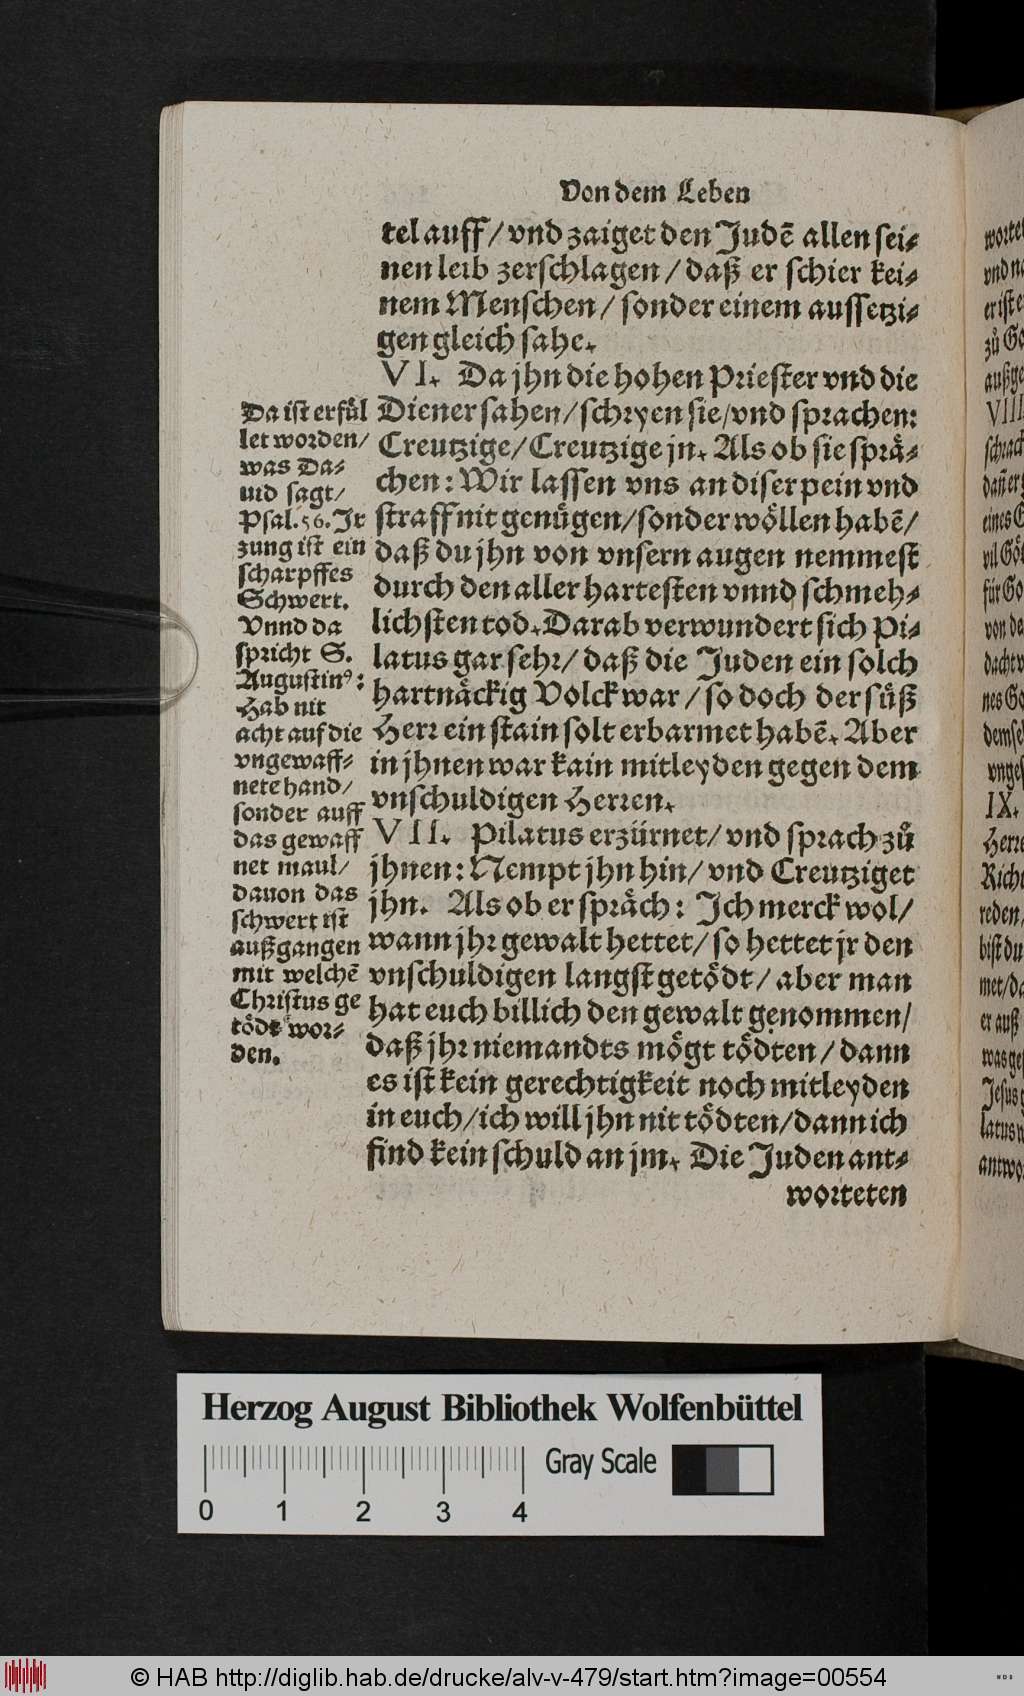 Von dem Leben
tel auff/ vnd zaiget den Judē allen sei-
nen leib zerschlagen/ daß er schier kei-
nem Menschen/ sonder einem aussetzi-
gen gleich sahe.
VI. Da jhn die hohen Priester vnd die
Diener sahen/ schryen sie/ vnd sprachen:
Creutzige/ Creutzige jn. Als ob sie sprä-
chen: Wir lassen vns an diser pein vnd
straff nit genügen/ sonder wöllen habē/
daß du jhn von vnsern augen nemmest
durch den aller hartesten vnnd schmeh-
lichsten tod. Darab verwundert sich Pi-
latus gar sehr/ daß die Juden ein solch
hartnäckig Volck war/ so doch der süß
Herr ein stain solt erbarmet habē. Aber
in jhnen war kain mitleyden gegen dem
vnschuldigen Herren.
VII. Pilatus erzürnet/ vnd sprach zů
jhnen: Nempt jhn hin/ vnd Creutziget
jhn. Als ob er spräch: Ich merck wol/
wann jhr gewalt hettet/ so hettet jr den
vnschuldigen langst getödt/ aber man
hat euch billich den gewalt genommen/
daß jhr niemandts mögt tödten/ dann
es ist kein gerechtigkeit noch mitleyden
in euch/ ich will jhn nit tödten/ dann ich
find kein schuld an jm. Die Juden ant-
worteten
Da ist erfül
let worden/
was Da-
uid sagt/
Psal. 56. Jr
zung ist ein
scharpffes
Schwert.
Vnnd da
spricht S.
Augustinꝰ:
Hab nit
acht auf die
vngewaff-
nete hand/
sonder auff
das gewaff
net maul/
dauon das
schwert ist
außgangen
mit welchē
Christus ge
tödt wor-
den.
VIII
IX.
Herzog August Bibliothek Wolfenbüttel
Gray Scale
0 1 2 3 4
© HAB http://diglib.hab.de/drucke/alv-v-479/start.htm?image=00554